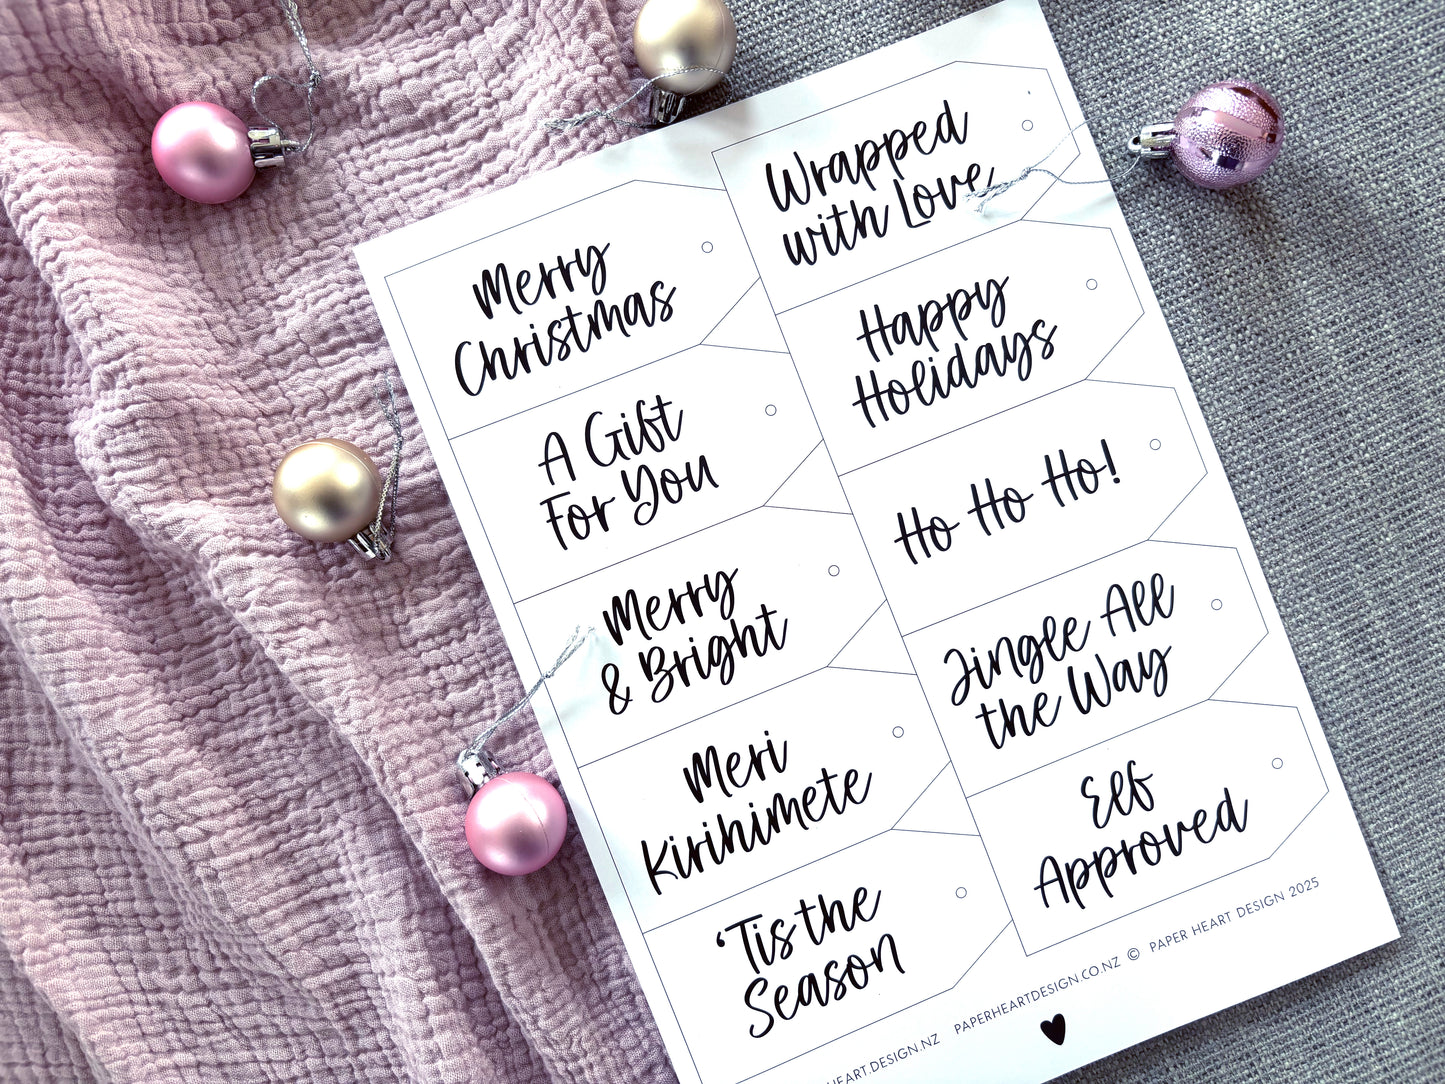 Merry
Christmas
A Gift
For You
Merry
& Bright
Meri
Kirihimete
'Tis the
Season
Wrapped
with Love
Happy
Holidays
Ho Ho Ho!
Jingle All
the Way
Elf
Approved
DESIGN.NZ PAPERHEARTDESIGN.CO.NZ © PAPER HEART DESIGN 2025